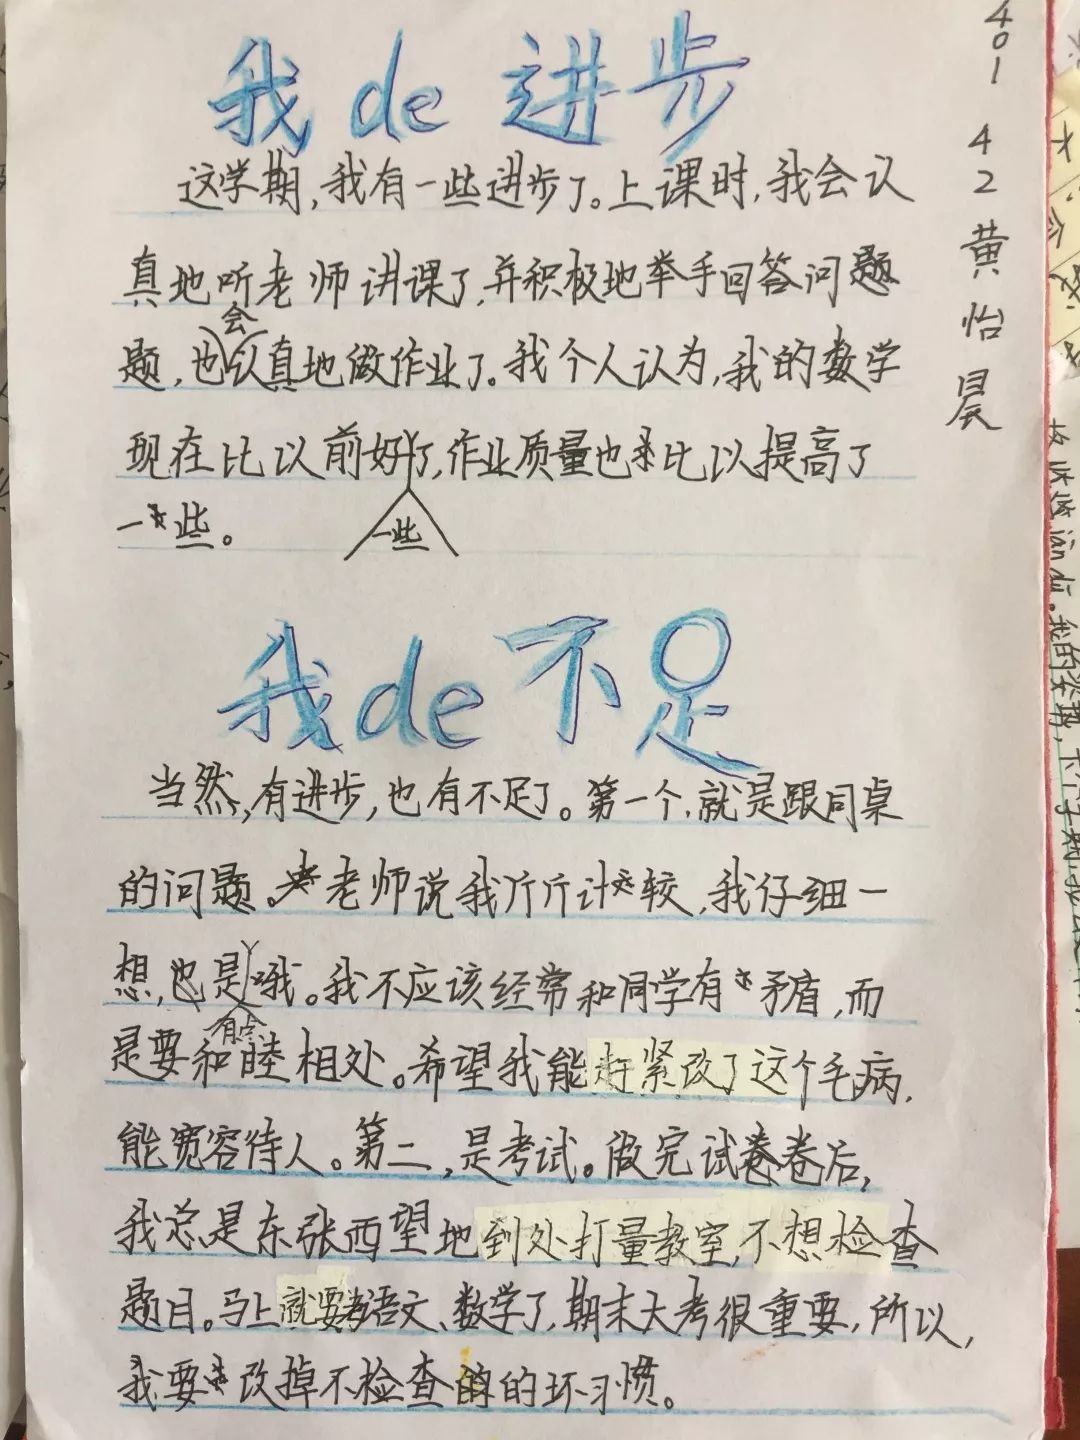 我de进步
401 42黄怡晨
这学期,我有一些进步了。上课时,我会认
真地听老师讲课了,并积极地举手回答问题
题,也会认真地做作业了。我个人认为,我的数学
现在比以前好了,作业质量也比以提高了
一些
一些。
我de不足
当然,有进步,也有不足了。第一个,就是跟同桌
的问题。老师说我斤斤计较,我仔细一
想,也是哦。我不应该经常和同学有矛盾,而
有点
是要和睦相处。希望我能赶紧改了这个毛病,
能宽容待人。第二,是考试。做完试卷卷后,
我总是东张西望地到处打量教室,不想检查
题目。马上就要考语文、数学了,期末大考很重要,所以,
我要改掉不检查的的坏习惯。